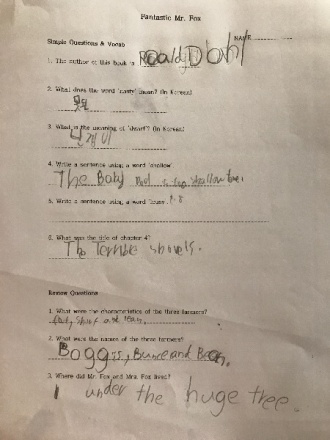 Fantastic Mr. Fox
NAME
Simple Questions & Vocab
1. The author of this book is Roald Dahl
2. What does the word 'nasty' mean? (In Korean)
3. What is the meaning of 'dwarf'? (In Korean)
난쟁이
4. Write a sentence using a word 'shallow'.
The Baby shallow
5. Write a sentence using a word
6. What was the title of chapter 4?
The Terrible shovels.
Review Questions
1. What were the characteristics of the three farmers?
and lean.
2. What were the names of the three farmers?
Boggis, Bunce and Bean.
3. Where did Mr. Fox and Mrs. Fox lived?
under the huge tree.